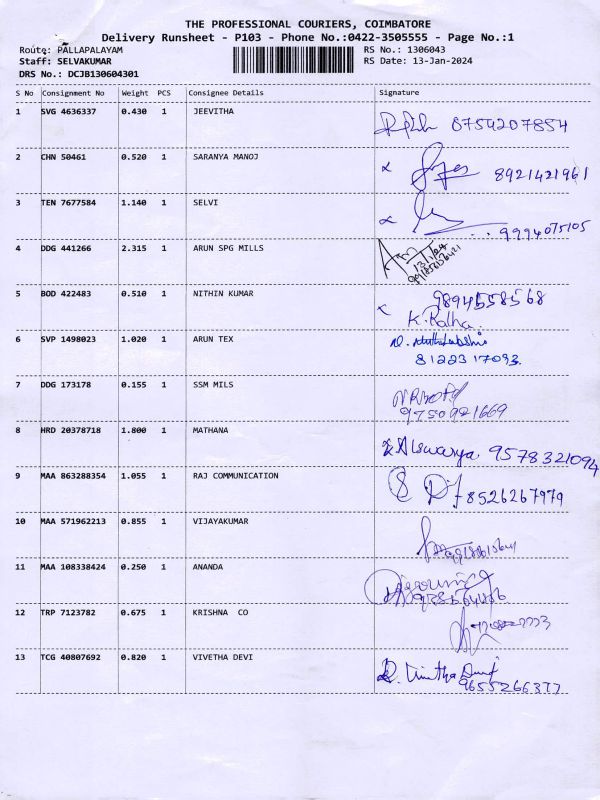 THE PROFESSIONAL COURIERS, COIMBATORE
Delivery Runsheet - P103 - Phone No.:0422-3505555 - Page No.:1
Route: PALLAPALAYAM RS No.: 1306043
Staff: SELVAKUMAR RS Date: 13-Jan-2024
DRS No.: DCJB130604301
S No Consignment No Weight PCS Consignee Details Signature
1 SVG 4636337 0.430 1 JEEVITHA 8754207854
2 CHN 50461 0.520 1 SARANYA MANOJ 8921421961
3 TEN 7677584 1.140 1 SELVI 9994075105
4 DDG 441266 2.315 1 ARUN SPG MILLS 13/1/24
5 BOD 422483 0.510 1 NITHIN KUMAR 9894558568
K. Ratha.
6 SVP 1498023 1.020 1 ARUN TEX
8122317093.
7 DDG 173178 0.155 1 SSM MILS
9750921669
8 HRD 20378718 1.800 1 MATHANA Aiswarya 9578321094
9 MAA 863288354 1.055 1 RAJ COMMUNICATION 8526267979
10 MAA 571962213 0.855 1 VIJAYAKUMAR
11 MAA 108338424 0.250 1 ANANDA
12 TRP 7123782 0.675 1 KRISHNA CO
13 TCG 40807692 0.820 1 VIVETHA DEVI
9655266377